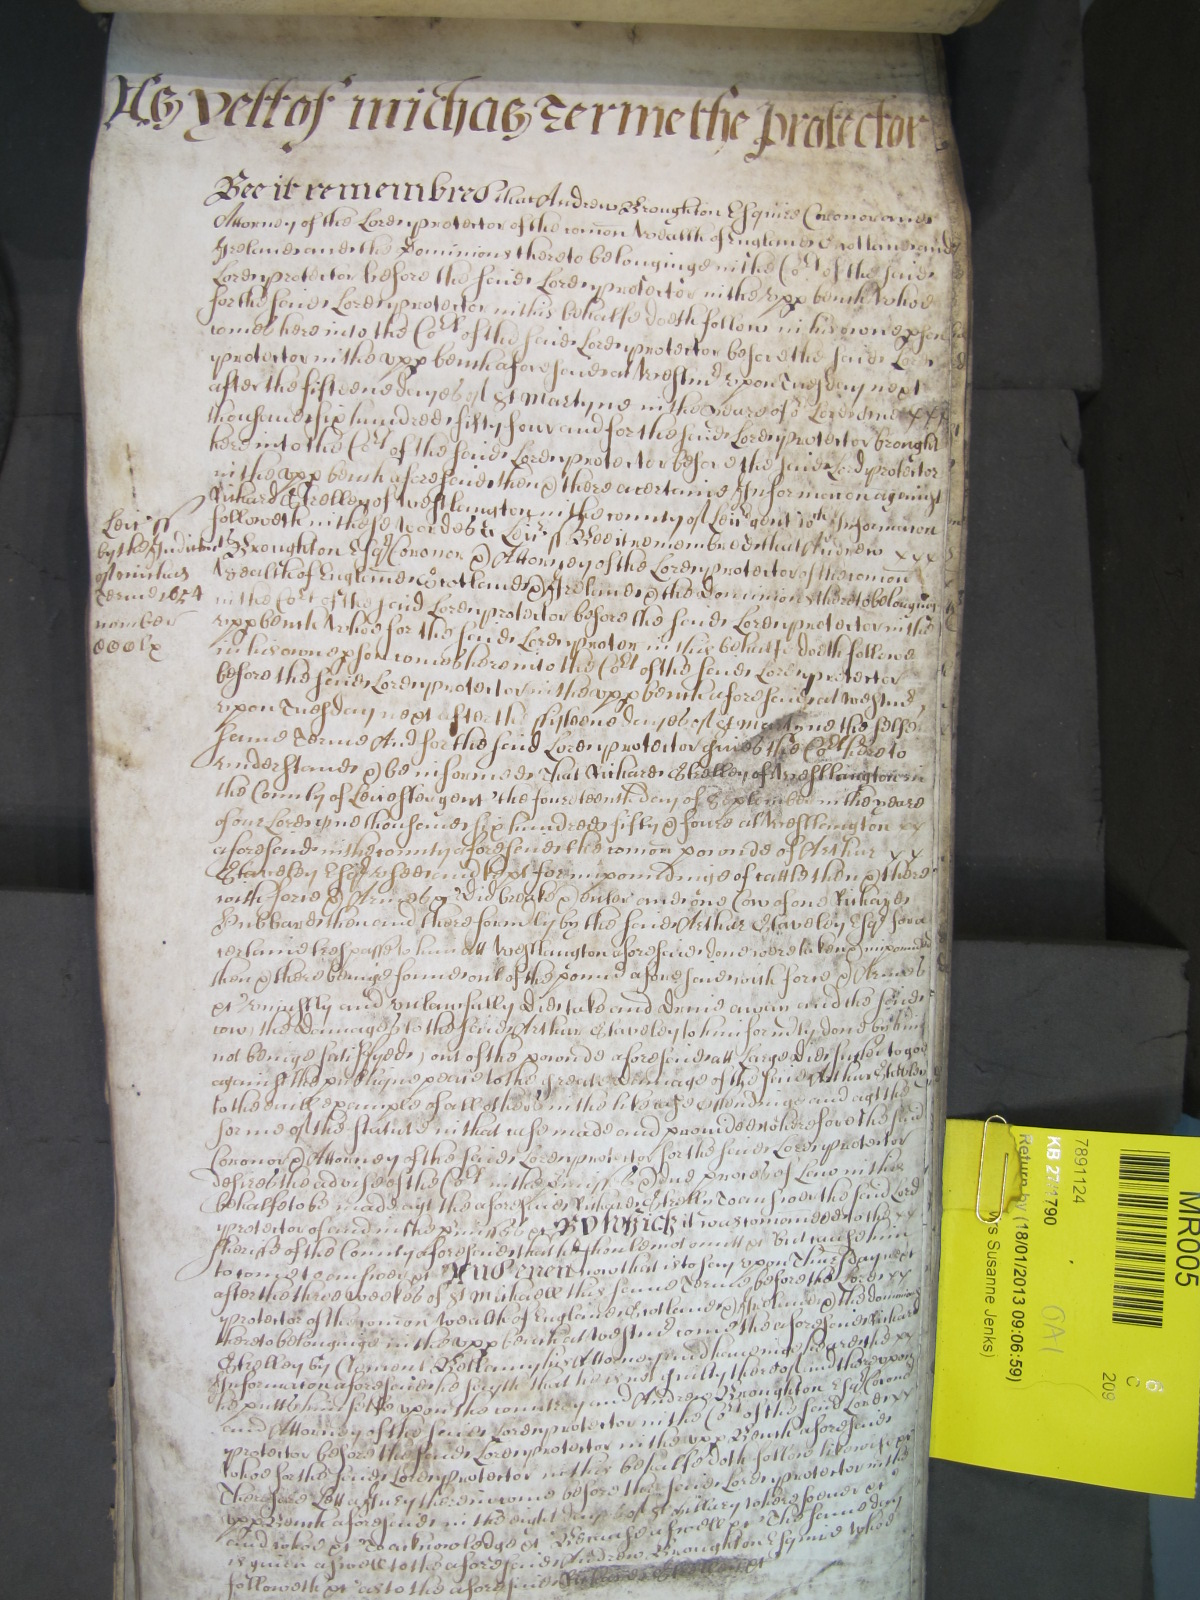 As yett of Michas Terme the Protector
Bee it remembred that Andrew Broughton Esquire Coronor and
Attorney of the Lord protector of the comon wealth of England Scotland and
Ireland and the Dominions thereto belonginge in the Cort of the said
Lord protector before the said Lord protector in the upp bench whoe
for the said Lord protector in this behalfe doeth follow in his owne pson
comes here into the Cort of the said Lord protector before the said Lord
protector in the upp bench aforesaid at Westmr upon Tuesday next
after the fifteene dayes of St Martyne in the yeare of or Lord one xxx
thousand six hundred fifty four and for the said Lord protector brought
here into the Cort of the said Lord protector before the said Lord protector
in the upp bench aforesaid then & there a certaine Informacon against
Richard Strelley of Westlangton in the county of Leic gent wch Informacon
followeth in these wordes Leic ss Bee it remembred that Andrew xxx
Broughton Esqr Coronor & Attorney of the Lord protector of the comon
wealth of England Scotland & Ireland & the Dominions thereto belonging
in the Cort of the said Lord protector before the said Lord protector in the
upp bench whoe for the said Lord protector in this behalfe doeth followe
in his owne pson comes here into the Cort of the said Lord protector
before the said Lord protector in the upp bench aforesaid at Westmr
upon Tuesday next after the fifteene dayes of St Martyne the selfe
same Terme And for the said Lord protector gives the Cort here to
understand & be informed That Richard Strelley of Westlangton in
the County of Leicester gent the fourteenth day of September in the yeare
of our Lord one thousand six hundred fifty & foure at Westlangton xx
aforesaid in the county aforesaid the comon pownde of Arthur xx
Staveley Esqr used and kept for impoundinge of cattle then & there
with force & Armes &c did breake & enter and one Cow of one Richard
Hubbard then and there formly by the said Arthur Staveley Esqr for a
certaine trespasse to him att Westlangton aforesaid done were taken & impounded
then & there beinge found out of the pound aforesaid with force & Armes
&c uniustly and unlawfully did take and drive away and the said
cow the damages to the said Arthur Staveley to him formly done by him
not beinge satisfyed, out of the pownde aforesaid att Large did suffer to goe
against the publique peace to the greate damage of the said Arthur Staveley
to the evill example of all others in the like case offendinge and agt the
forme of the statute in that case made and provided wherefore the said
Coronor & Attorney of the said Lord protector for the said Lord protector
desires the advise of the Cort in the pmisses & due proces of Law in this
behalfe to be made agt the aforesaid Richard Strelley To answer the said Lord
protector of and in the pmisses &c Wherefore it was comanded to the xx
sheriffe of the County aforesaid that he should not omitt &c But cause him
to come to answer &c And now that is to say upon Thursday next
after the three weekes of St Michaell this same Terme before the Lord xx
protector of the comon wealth of England Scotland & Ireland & the dominions
thereto belonginge in the upp bench at Westmr come the aforesaid Richard
Strelley by Clement his Attorney and haveinge heard the xx
Informacon aforesaid he sayth that he is not guilty thereof And thereupon
he putts himselfe upon the countrey and Andrew Broughton Esqr Coronor
and Attorney of the said Lord protector in the Cort of the said Lord xx
protector before the said Lord protector in the upp Bench aforesaid
whoe for the said Lord protector in this behalfe doth follow likewise &c
Therefore Lett a Jury therein come before the said Lord protector in the
upp Bench aforesaid in the eight dayes of St Hillary wheresoever &c
and whoe &c To acknowledge &c Because aswell &c The same day
is given aswell to the aforesaid Andrew Broughton Esquire whoe
followeth &c as to the aforesaid Richard Strelley &c
Leic ss
by the Indictmt
of michas
Terme 1654
number
MR005
7891124
KB 27/1790
Return by (18/01/2013 09:06:59)
Susanne Jenks)
209
6
C